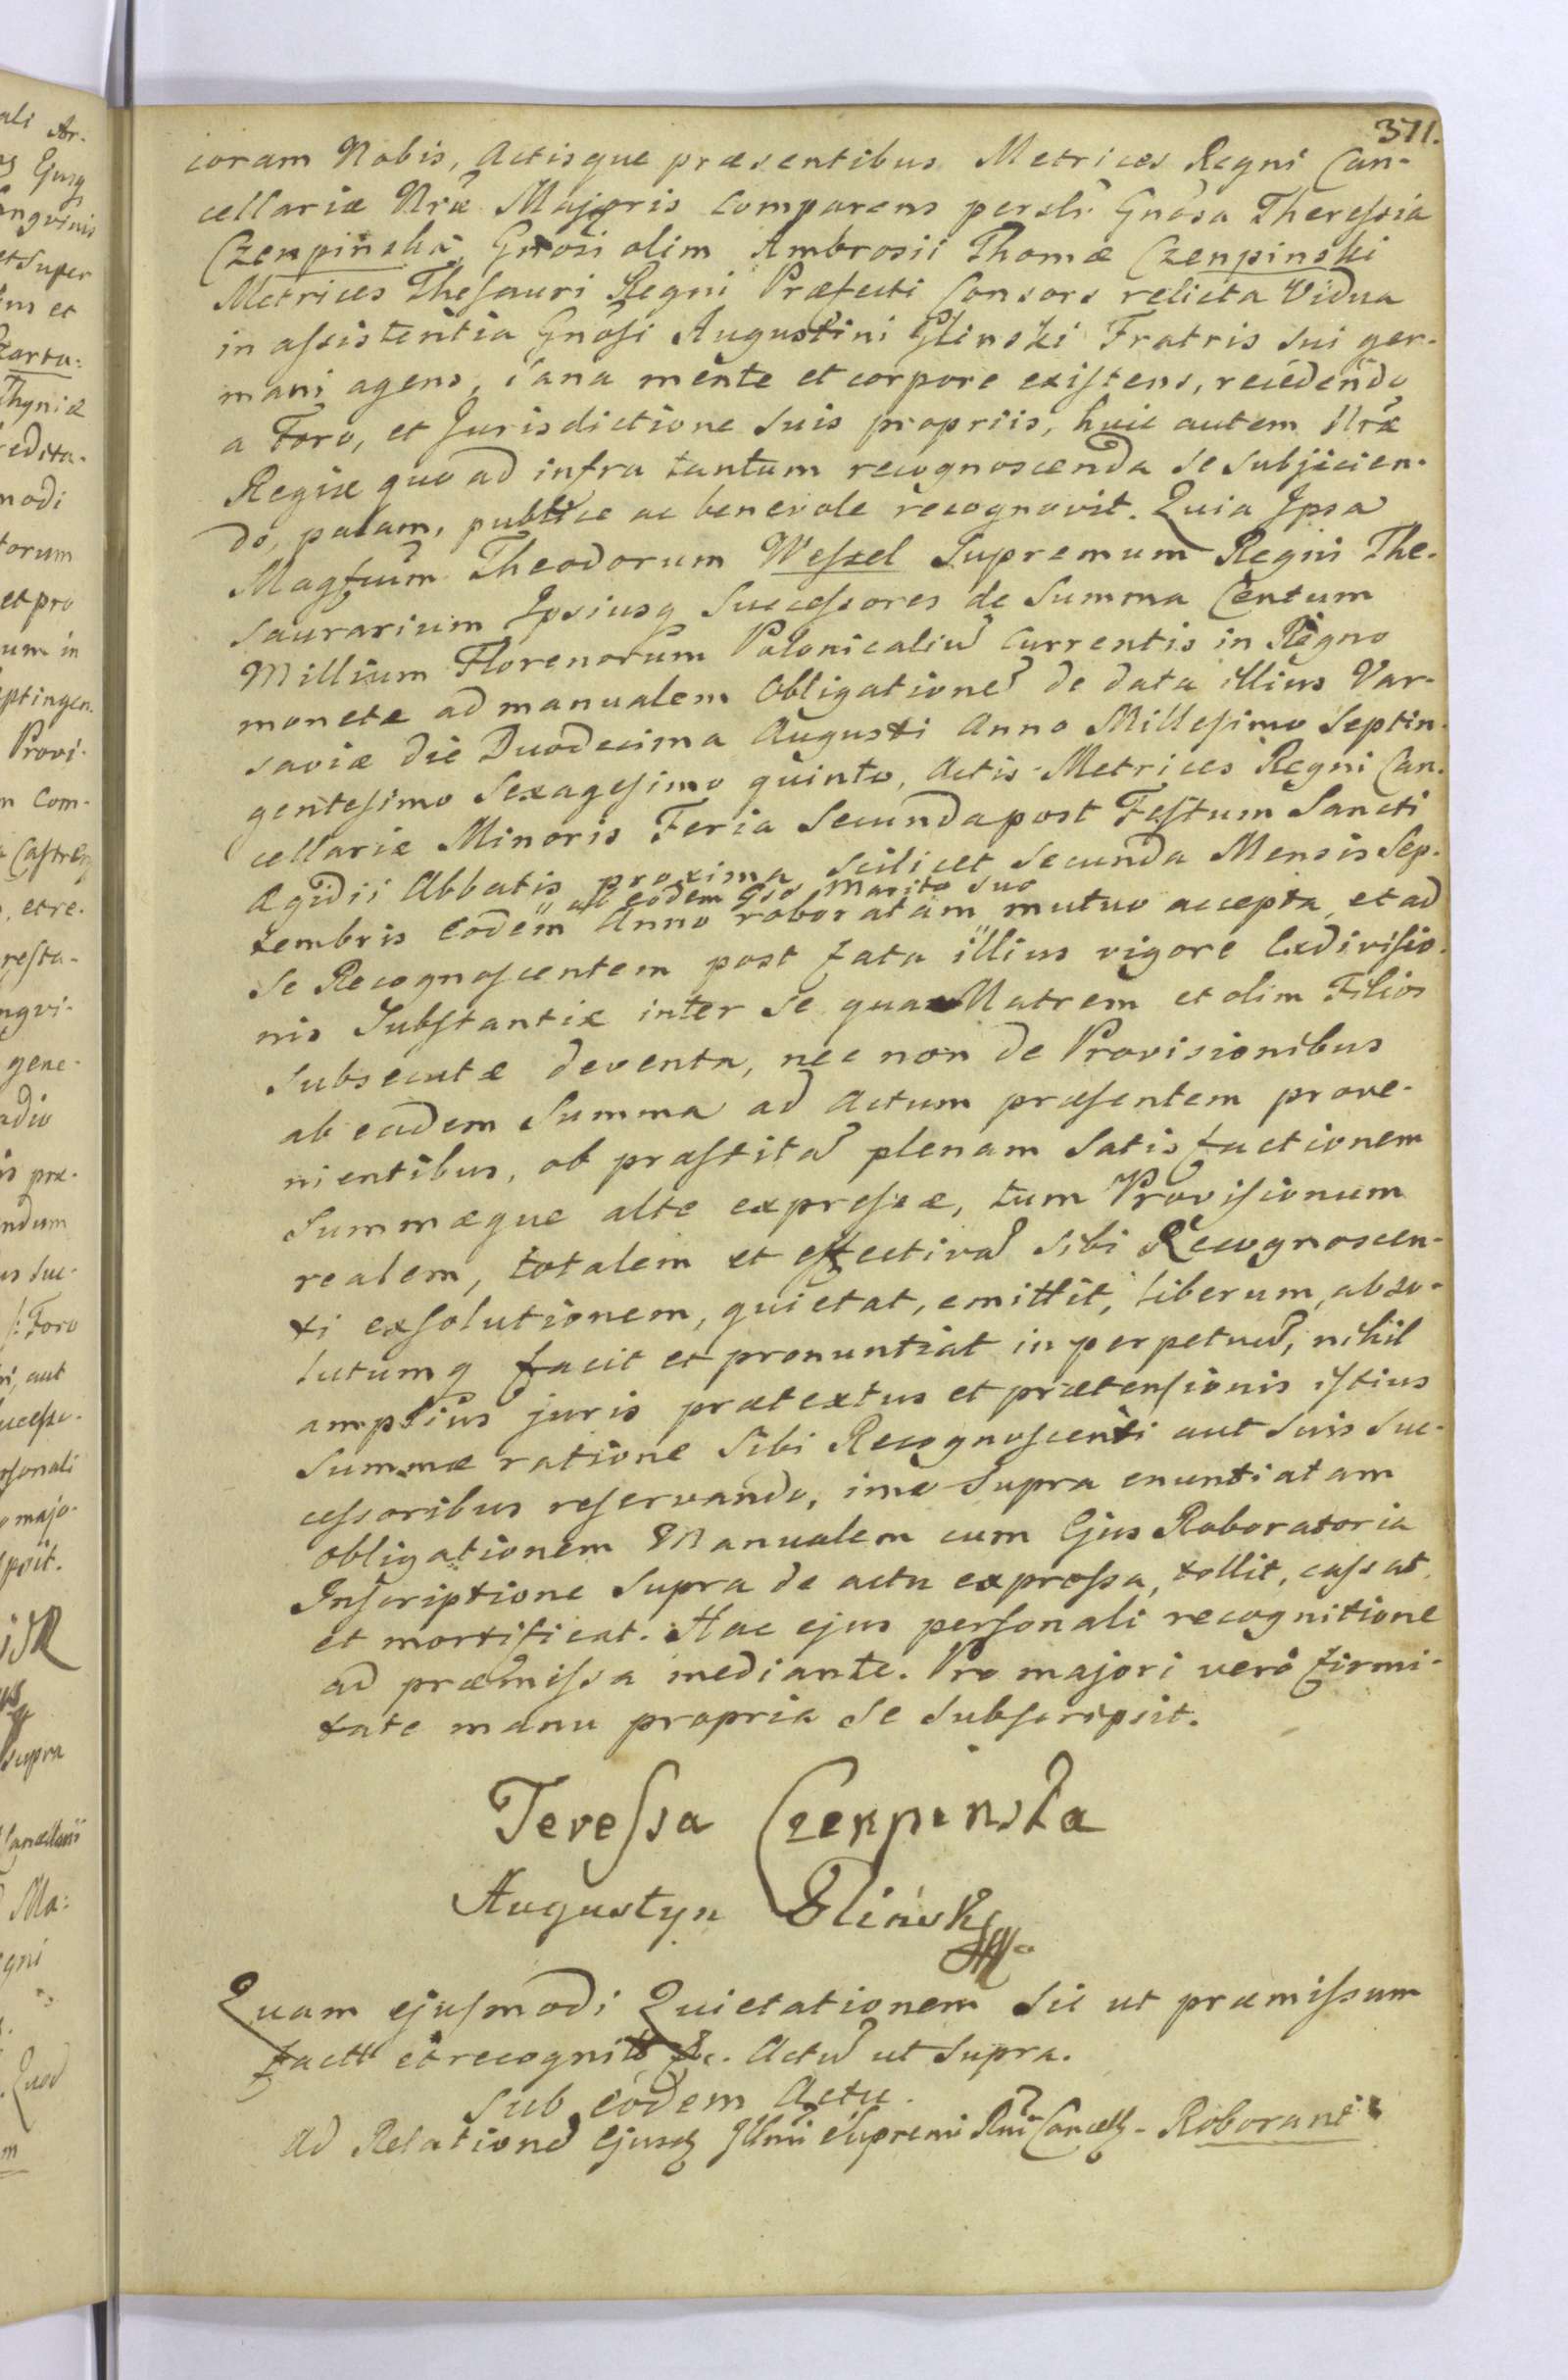 371.
coram Nobis, Actisque præsentibus Metrices Regni Can-
cellariæ Nræ Majoris Comparens persolr Gnosa Theressia
Czenpinska, Gnosi olim Ambrosii Thomæ Czenpinski
Metrices Thesauri Regni Præfecti Consors relicta Vidua
in assistentia Gnosi Augustini Glinski Fratris sui ger-
mani agens, sana mente et corpore existens, recedendo
a Foro, et Jurisdictione suis propriis, huic autem Nræ
Regiæ quo ad infra tantum recognoscenda se subjicien-
do, palam, publice ac benevole recognovit. Quia Ipsa
Magfcum Theodorum Wessel Supremum Regni The-
saurarium Ipsiusq Successores de Summa Centum
Millium Florenorum Polonicaliu Currentis in Regno
monetæ ad manualem Obligatione de data illius Var-
saviæ die Duodecima Augusti Anno Millesimo Septin-
gentesimo Sexagesimo quinto, Actis Metrices Regni Can-
cellariæ Minoris Feria Secunda post Festum Sancti
Ægidii Abbatis proxima scilicet secunda Mensis Sep-
ab eodem Gso Marito suo
tembris Eodem Anno roboratam mutuo accepta, et ad
se Recognoscentem post fata illius vigore Exdivisio-
nis Substantiæ inter se qua Matrem et olim Filios
subsecutæ deventa, nec non de Provisionibus
ab eadem Summa ad Actum præsentem prove-
nientibus, ob præstita plenam Satisfactionem
Summæque alte expressæ, tum Provisionum
realem, totalem et effectiva sibi Recognoscen-
ti exsolutionem, quietat, emittit, liberum, abso-
lutumq facit et pronuntiat in perpetuu, nihil
amplius juris prætextus et prætensionis istius
Summæ ratione sibi Recognoscenti aut suis Suc-
cessoribus reservando, imo supra enuntiatam
obligationem Manualem cum Ejus Roboratoria
Inscriptione supra de actu expressa, tollit, cassat
et mortificat. Hac ejus personali recognitione
ad præmissa mediante. Pro majori vero firmi-
tate manu propria se subscripsit.
Teressa Czenpinska
Augustyn Glinski
Quam ejusmodi Quietationem sic ut præmissum
factt et recognitt &c. Actu ut supra.
Sub eodem Actu.
Ad Relatione Ejusd Illmi Supremi Rni Cancell - Roborant